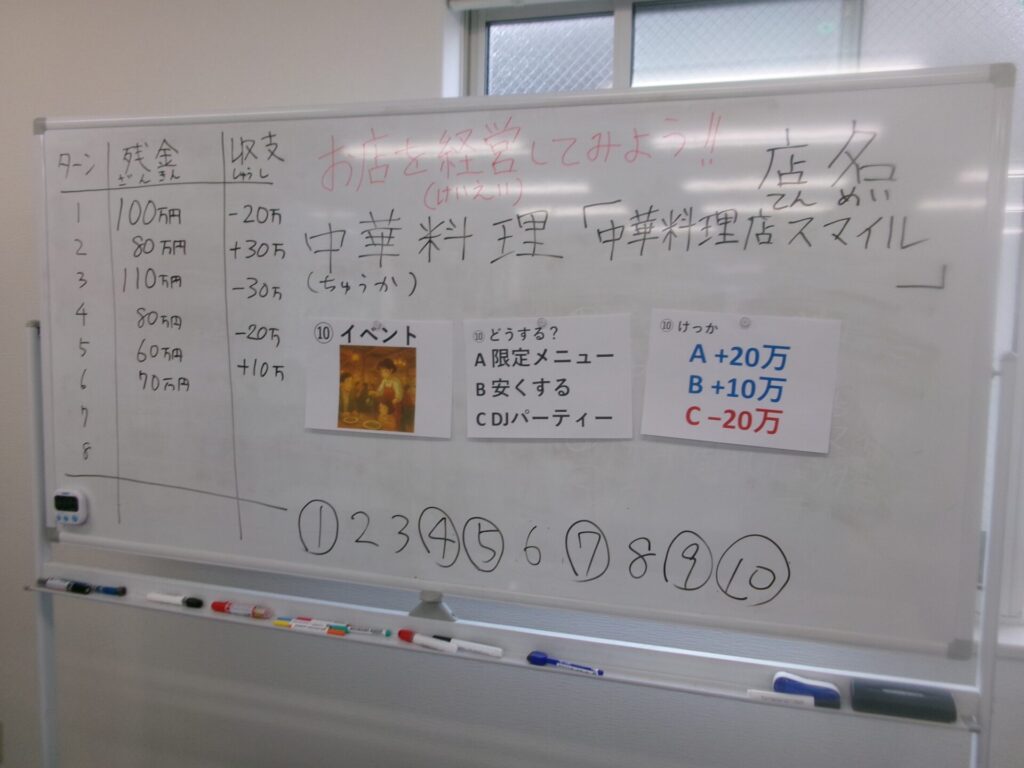 ターン 残金 収支
ざんきん しゅうし
1 100万円 -20万
2 80万円 +30万
3 110万円 -30万
4 80万円 -20万
5 60万円 +10万
6 70万円
7
8
お店を経営してみよう!!
(けいえい)
店名
てんめい
中華料理「中華料理店スマイル
」
(ちゅうか)
⑩ イベント
⑩ どうする?
A 限定メニュー
B 安くする
C DJパーティー
⑩ けっか
A +20万
B +10万
C −20万
① 2 3 ④ ⑤ 6 ⑦ 8 ⑨ ⑩